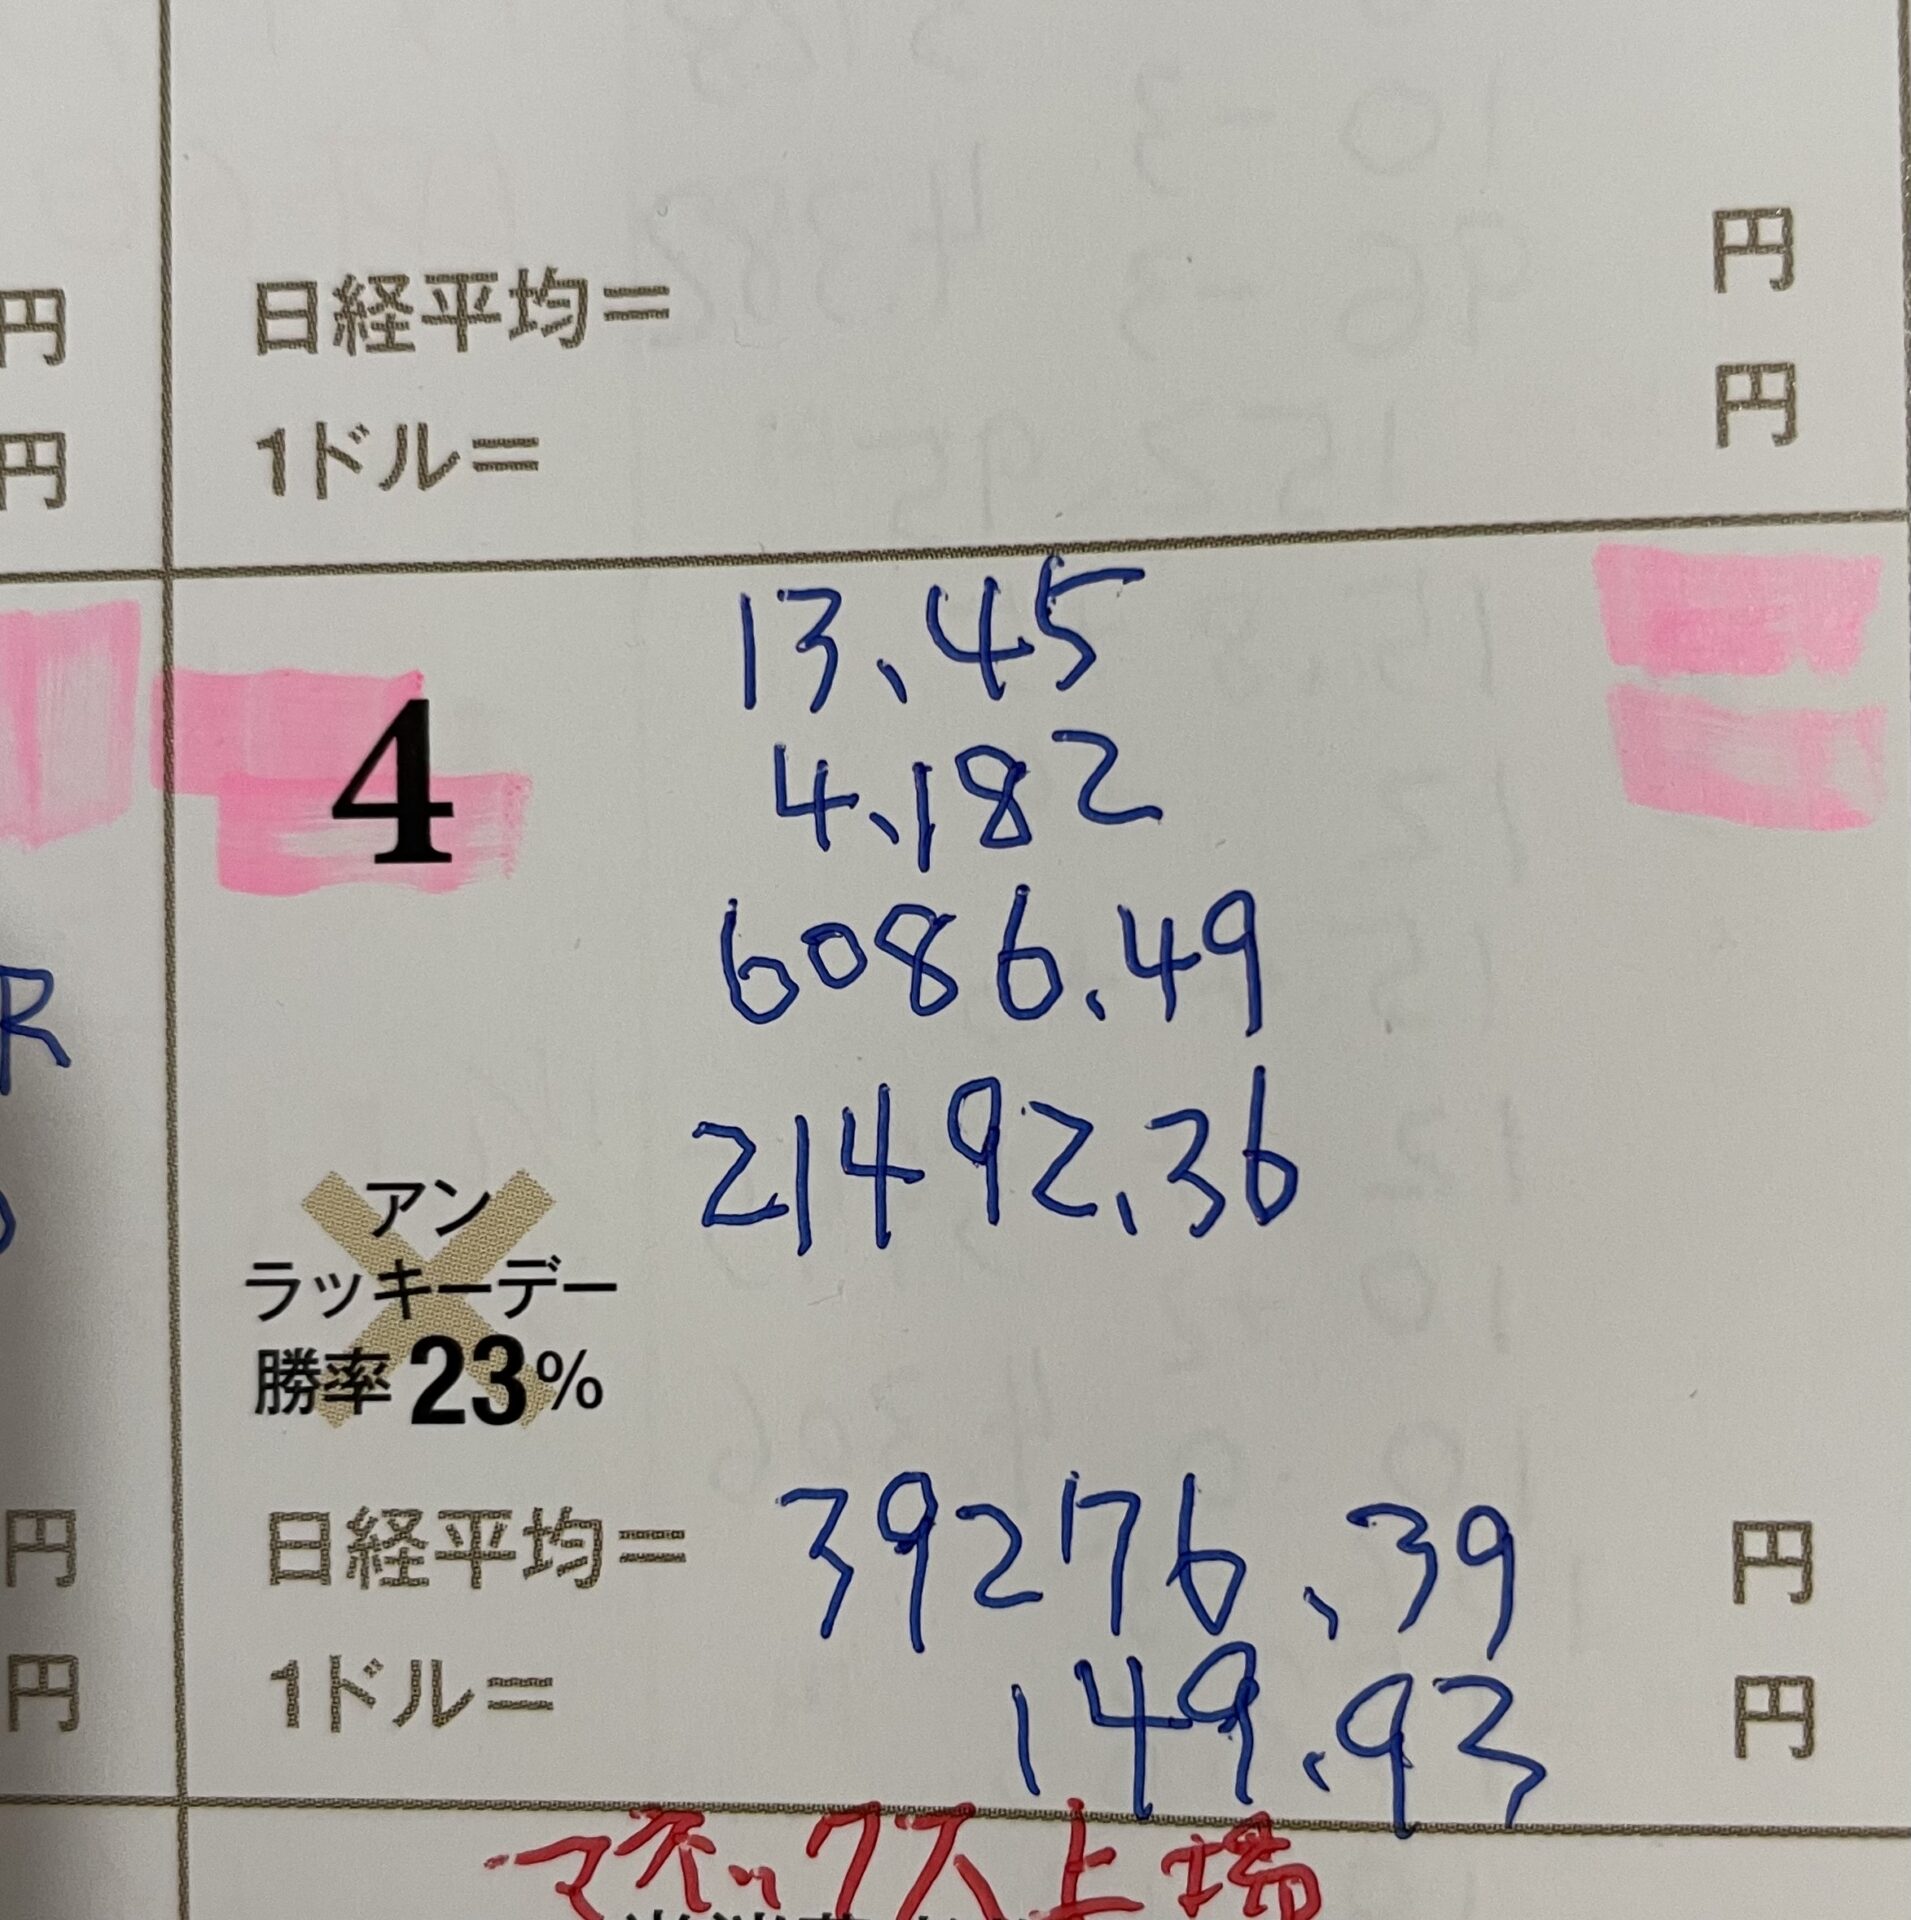 円
円
日経平均= 円
1ドル= 円
13.45
4
4.182
6086.49
R
21492.36
アン
ラッキーデー
勝率23%
円
日経平均= 39276.39 円
円
1ドル= 149.93 円
マネックス上場